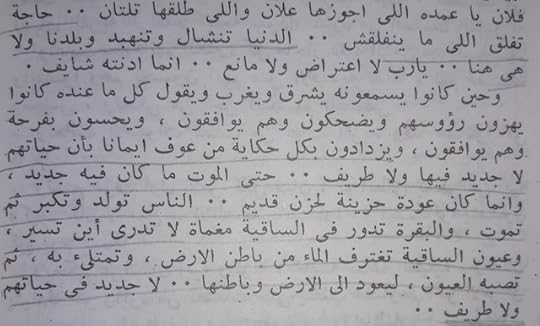 فلان يا عمده اللى اجوزها علان واللى طلقها تلتان ٠٠ حاجة
تفلق اللى ما ينفلقش ٠٠ الدنيا تنشال وتنهبد وبلدنا ولا
هى هنا ٠٠ يارب لا اعتراض ولا مانع ٠٠ انما ادنته شايف ٠
وحين كانوا يسمعونه يشرق ويغرب ويقول كل ما عنده كانوا
يهزون رؤوسهم ويضحكون وهم يوافقون ، ويحسون بفرحة
وهم يوافقون ، ويزدادون بكل حكاية من عوف ايمانا بأن حياتهم
لا جديد فيها ولا طريف ٠٠ حتى الموت ما كان فيه جديد ،
وانما كان عودة حزينة لحزن قديم ٠٠ الناس تولد وتكبر ثم
تموت ، والبقرة تدور فى الساقية مغماة لا تدرى أين تسير ،
وعيون الساقية تغترف الماء من باطن الارض ، وتمتلىء به ، ثم
تصبه العيون ، ليعود الى الارض وباطنها ٠٠ لا جديد فى حياتهم
ولا طريف ٠٠